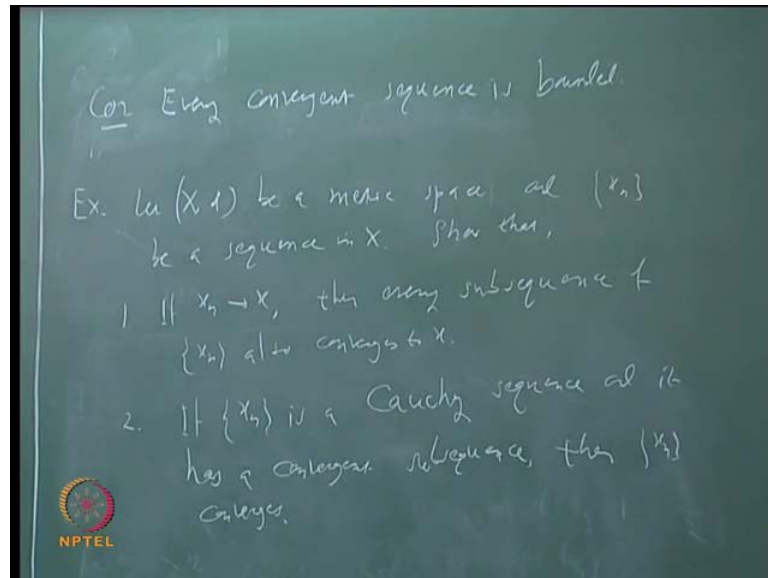 Cor Every convergent sequence is bounded.
Ex. Let (X, d) be a metric space and {xn}
be a sequence in X. Show that,
1 If xn → x, then every subsequence of
{xn} also converges to x.
2. If {xn} is a Cauchy sequence and it
has a convergent subsequence, then {xn}
converges.
NPTEL